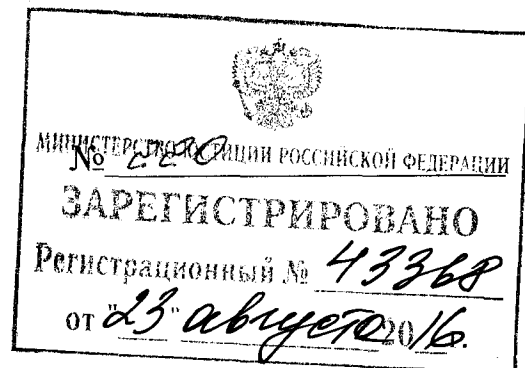 МИНИСТЕРСТВО ЮСТИЦИИ РОССИЙСКОЙ ФЕДЕРАЦИИ
№
ЗАРЕГИСТРИРОВАНО
Регистрационный № 43368
от "23" августа 2016.